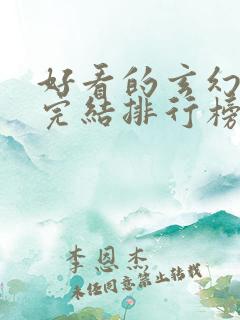 好看的玄幻
完结排行榜
李恩杰
未经同意禁止转载